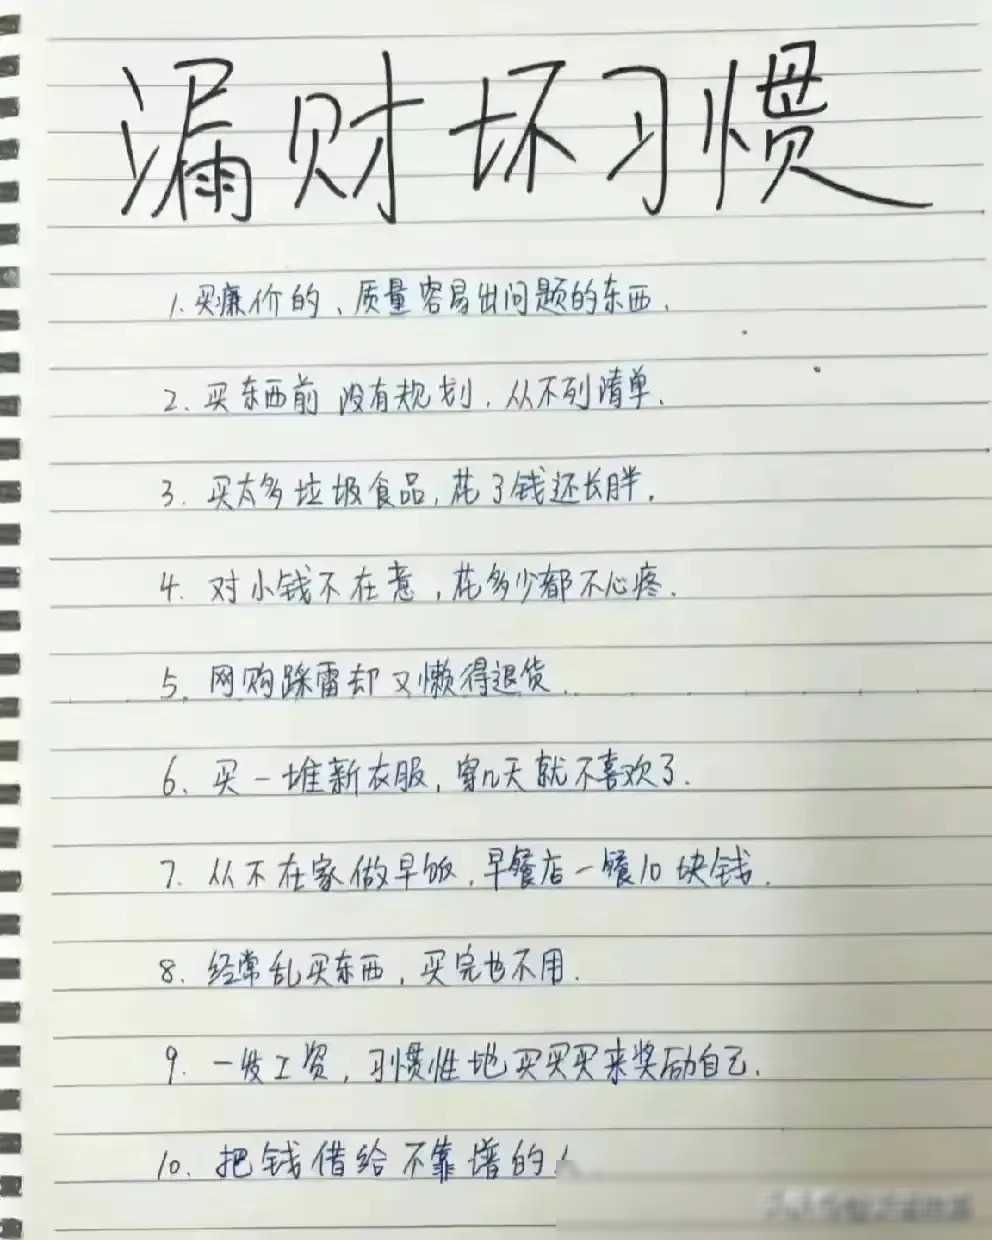 漏财坏习惯
1.买廉价的、质量容易出问题的东西.
2.买东西前 没有规划.从不列清单.
3.买太多垃圾食品,花了钱还长胖.
4.对小钱不在意,花多少都不心疼.
5.网购踩雷却又懒得退货.
6、买一堆新衣服,穿几天就不喜欢了.
7.从不在家做早饭,早餐店一餐10块钱.
8.经常乱买东西,买完也不用.
9.一发工资,习惯性地买买买来奖励自己.
10.把钱借给不靠谱的